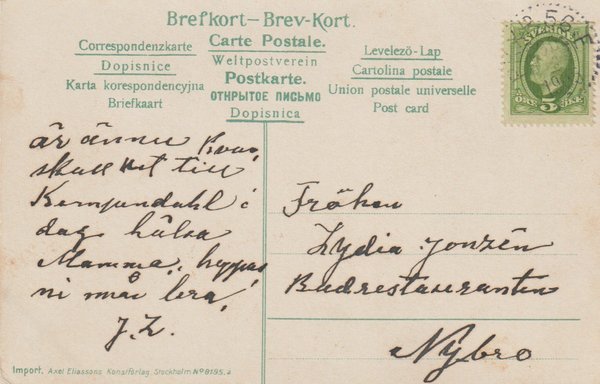 Brefkort—Brev-Kort.
Correspondenzkarte
Carte Postale.
Levelező-Lap
Dopisnice
Weltpostverein
Cartolina postale
Karta korespondencyjna
Postkarte.
Union postale universelle
Briefkaart
ОТКРЫТОЕ ПИСЬМО
Post card
Dopisnica
SVERIGE
ÖRE 5 ÖRE
är ännu kvar,
skall ut till
i
dag hälsa
Mamma, hoppas
ni mår bra!
Fröken
Lydia Jonzén
Badrestauranten
Nybro
Import. Axel Eliassons Konstförlag. Stockholm No 8195. a